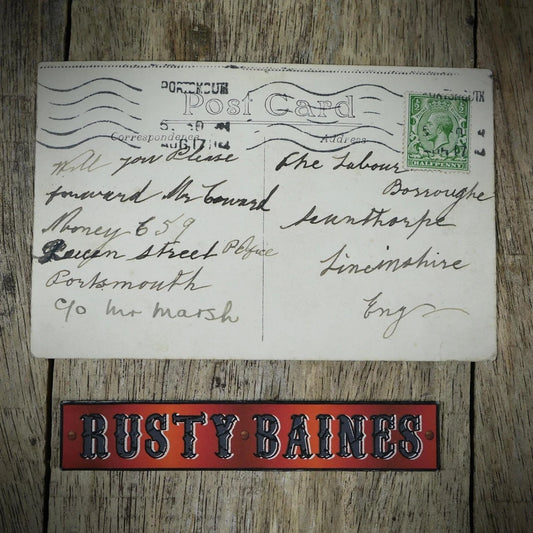 PORTSMOUTH
5. 30
AUG 17
Post Card
Correspondence
Address
HALFPENNY
Will you Please
forward Mr Coward
Money 659
Queen Street
Portsmouth
c/o Mr Marsh
The Labour
Borroughe
Scunthorpe
Lincinshire
Eng
RUSTY BAINES